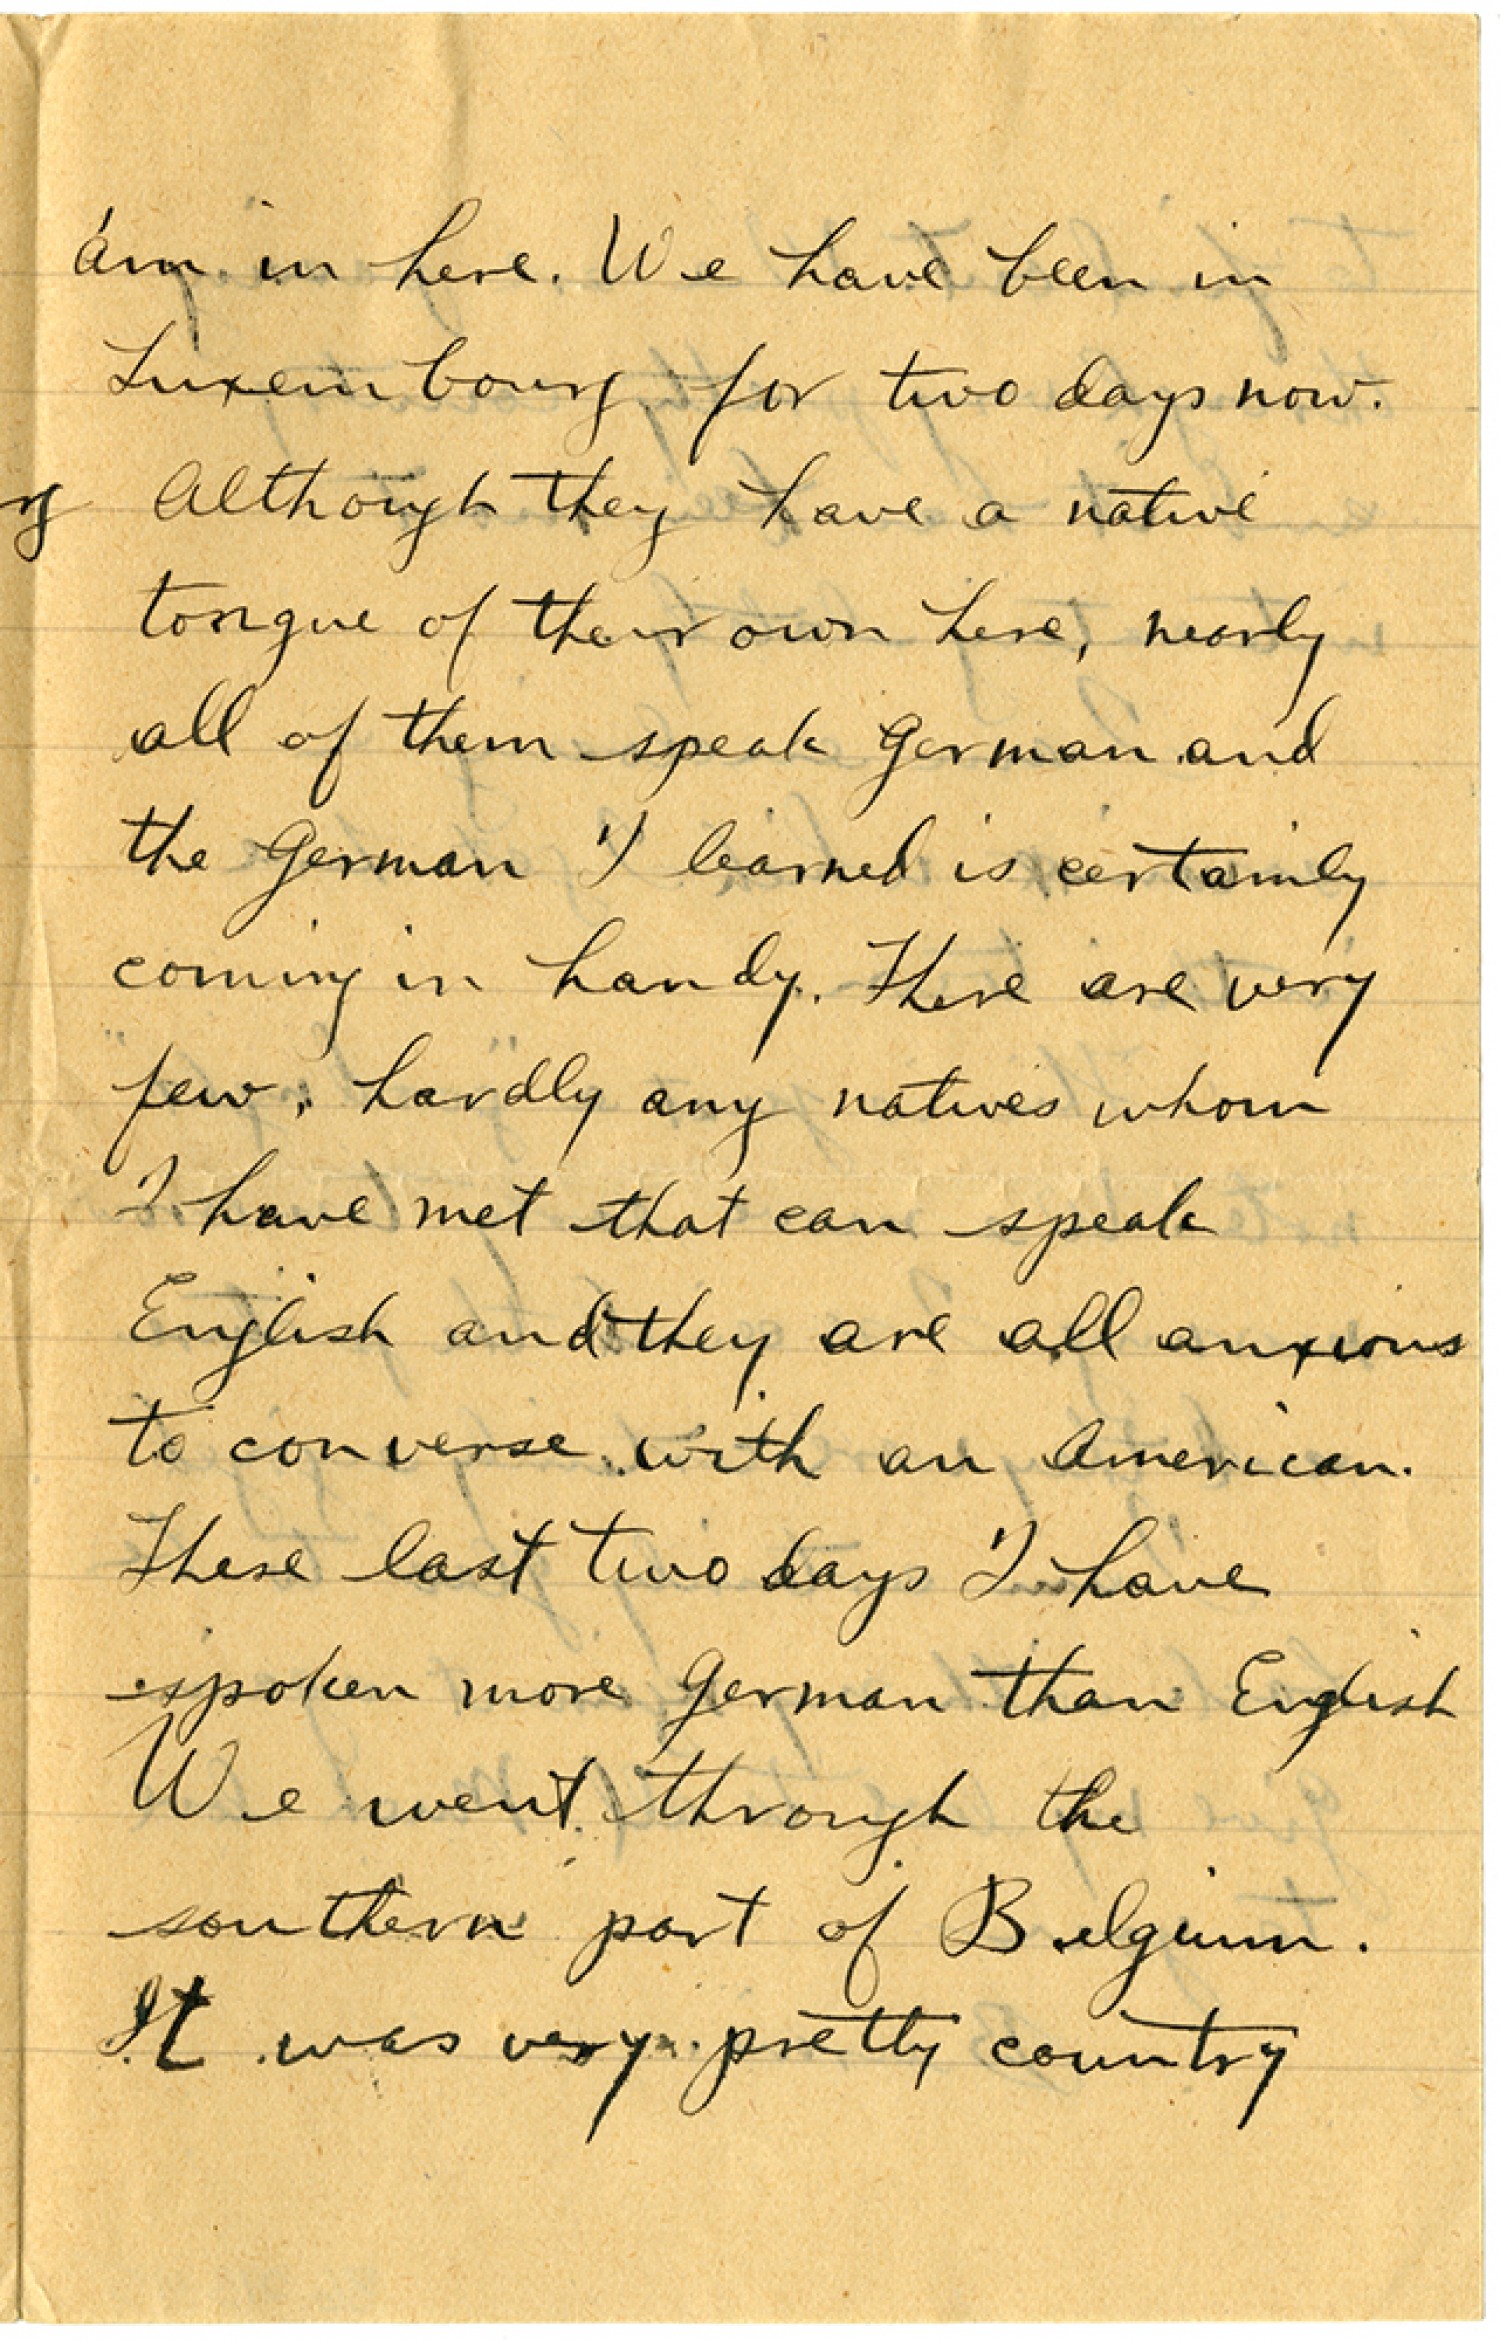 am in here. We have been in
Luxembourg for two days now.
Although they have a native
tongue of their own here, nearly
all of them speak German and
the German I learned is certainly
coming in handy. There are very
few, hardly any natives whom
I have met that can speak
English and they are all anxious
to converse with an American.
These last two days I have
spoken more German than English
We went through the
southern part of Belgium.
It was very pretty country